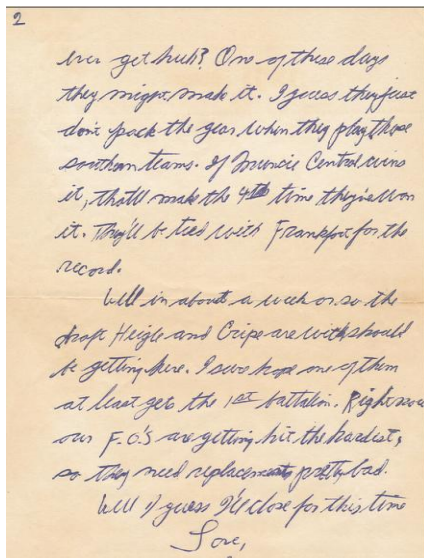 2
ever get huh? One of these days
they might make it. I guess they just
don't pack the gear when they play those
southern teams. If Muncie Central wins
it, that'll make the 4th time they've won
it. They'll be tied with Frankfort for the
record.
Well in about a week or so the
draft Heigle and Cripe are with should
be getting here. I sure hope one of them
at least gets the 1st battalion. Right now
our F.O.'s are getting hit the hardist,
so they need replacements pretty bad.
Well I guess I'll close for this time
Love,